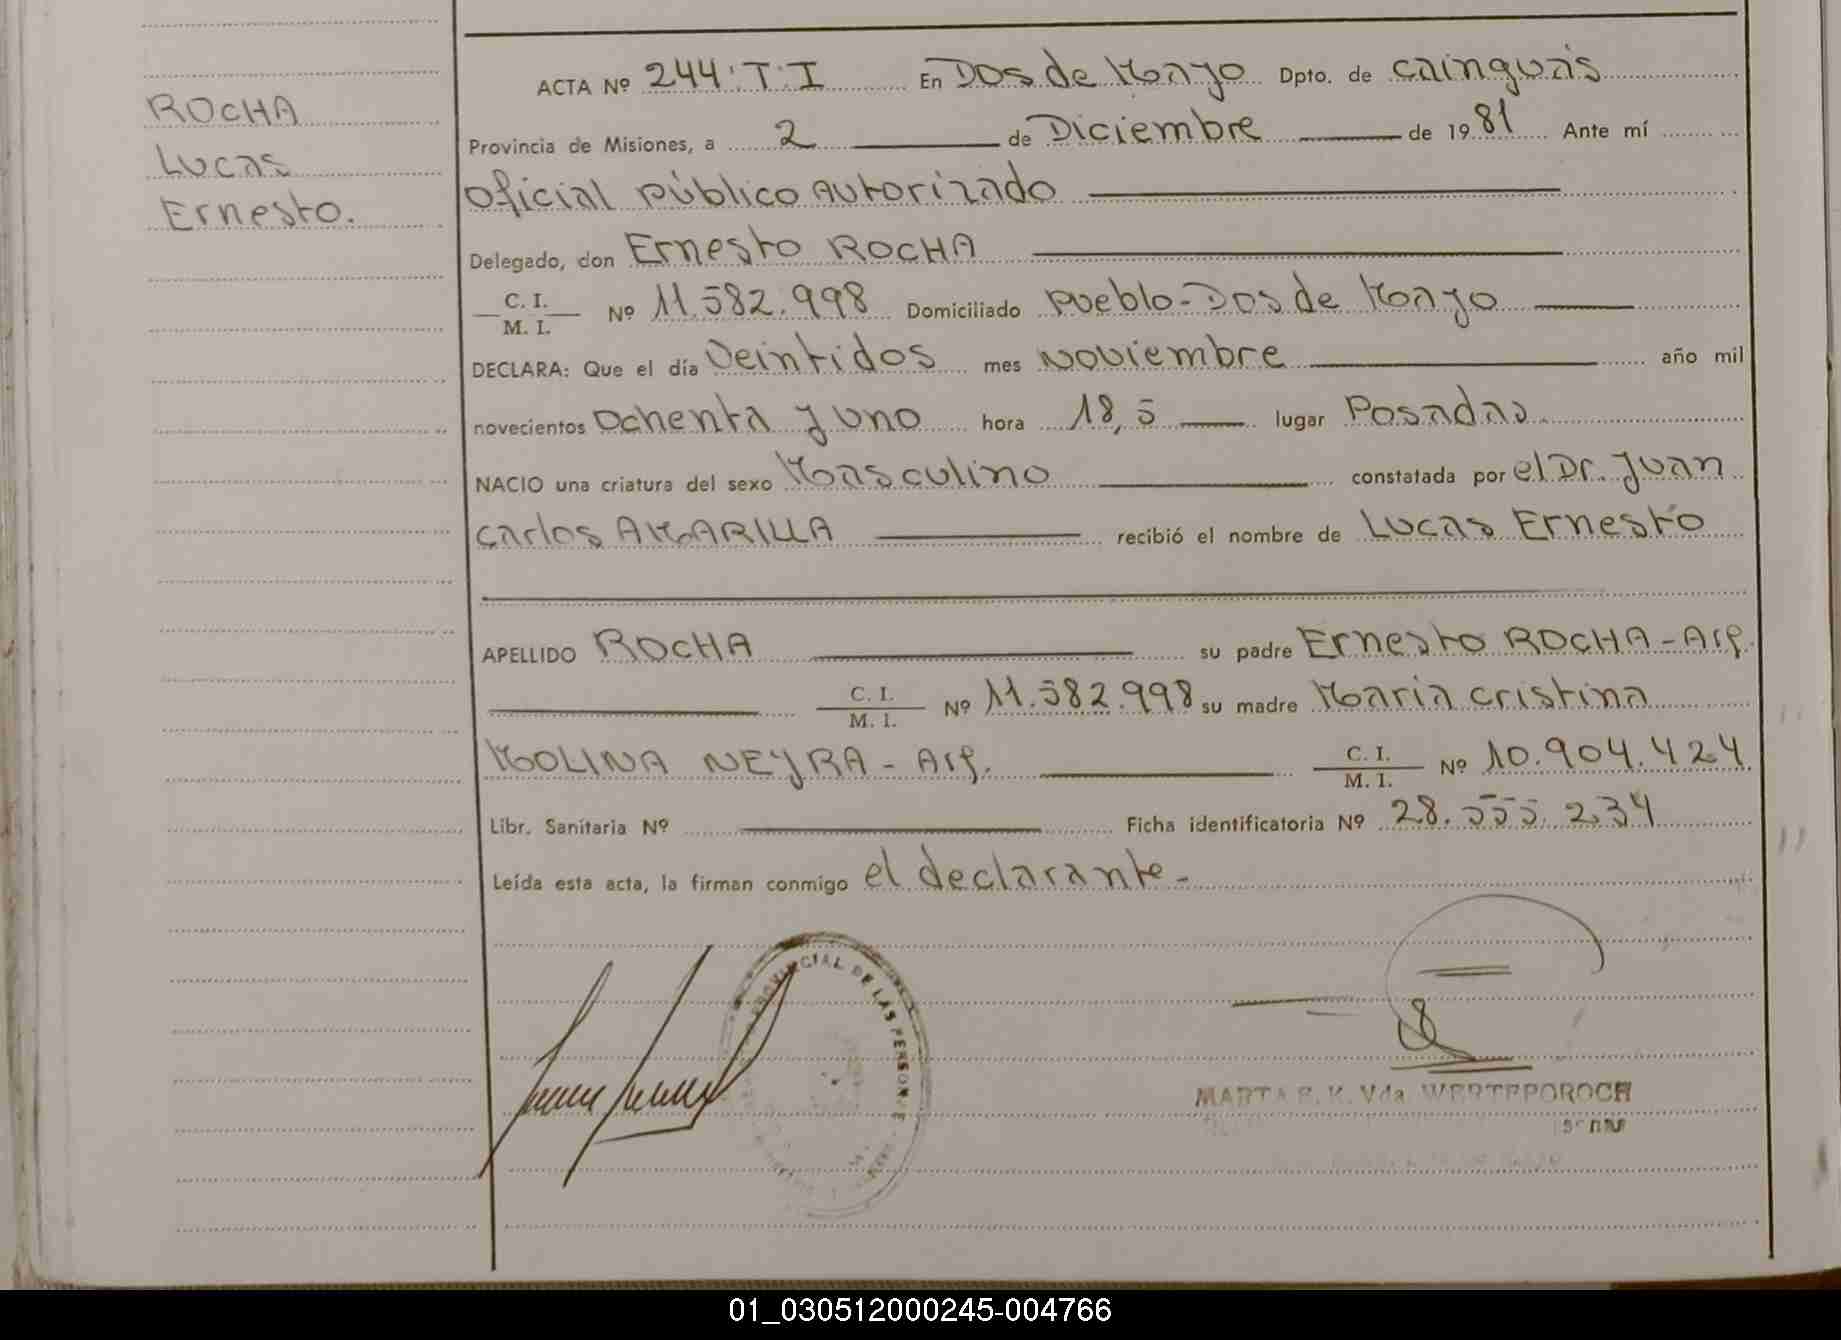 ROCHA
Lucas
Ernesto.
ACTA Nº 244:T:I En Dos de Mayo Dpto. de cainguás
Provincia de Misiones, a 2 de Diciembre de 1981 Ante mí
Oficial Público Autorizado
Delegado, don Ernesto ROCHA
C. I.
M. I.
Nº 11.582.998 Domiciliado Pueblo-Dos de Mayo
DECLARA: Que el día Veintidos mes Noviembre año mil
novecientos Ochenta y Uno hora 18,5 lugar Posadas
NACIO una criatura del sexo Masculino constatada por el Dr. Juan
Carlos AMARILLA recibió el nombre de Lucas Ernesto
APELLIDO ROCHA su padre Ernesto ROCHA-Arg.
C. I.
M. I.
Nº 11.582.998 su madre Maria Cristina
MOLINA NEYRA - Arg.
C. I.
M. I.
Nº 10.904.424
Libr. Sanitaria Nº Ficha identificatoria Nº 28.555.234
Leída esta acta, la firman conmigo el declarante-
PROVINCIAL DE LAS PERSONAS
MARTA E. K. Vda WERTEPOROCH
01_030512000245-004766